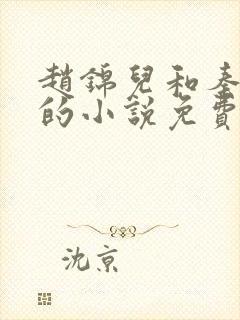 趙錦兒和秦
的小說免費
沈京